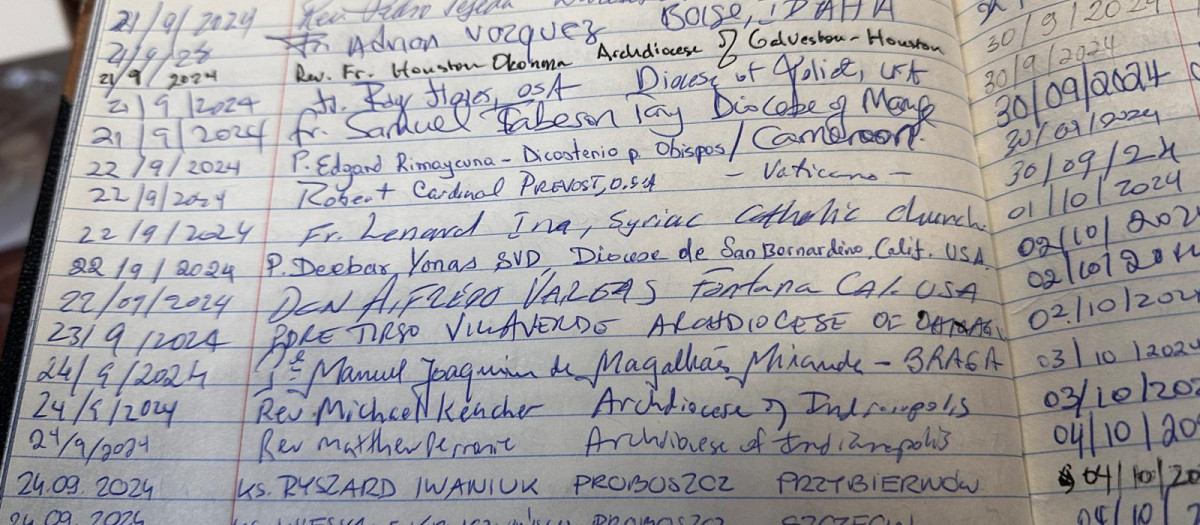 21/9/2024 Rev. Pedro
21/9/28 Fr. Adrian Vazquez Boise, IDAHA
21/9/2024 Rev. Fr. Houston Okonma Archdiocese of Galveston-Houston
21/9/2024 Fr. Ray Flores, OSA Diocese of Joliet, USA
21/9/2024 Fr. Samuel Tabeson Tay Diocese of Mamfe
/Cameroon.
22/9/2024 P. Edgard Rimaycuna - Dicasterio p. Obispos
22/9/2024 Robert Cardinal PREVOST, O.S.A - Vaticano -
22/9/2024 Fr. Lenard Ina, Syriac Catholic church
22/9/2024 P. Deebar, Yonas SVD, Diocese de San Bernardino, Calif. USA.
22/09/2024 DCN ALFREDO VARGAS Fontana CAL. USA
23/9/2024 PDRE TIRSO VILLAVERDE ARCHDIOCESE OF
24/9/2024 Pe Manuel Joaquim de Magalhães Miranda - BRAGA
24/9/2024 Rev. Michael Keucher Archdiocese of Indianapolis
24/9/2024 Rev Matthew Perronie Archdiocese of Indianapolis
24.09.2024 KS. RYSZARD IWANIUK PROBOSZCZ PRZYBIERNÓW
24.09.2024 PROBOSZCZ SZCZECIN
30/9/2024
30/9/2024
30/09/2024
30/09/2024
30/09/24
01/10/2024
02/10/202
02/10/20
02/10/202
03/10/2024
03/10/202
04/10/20
04/10/20
04/10/